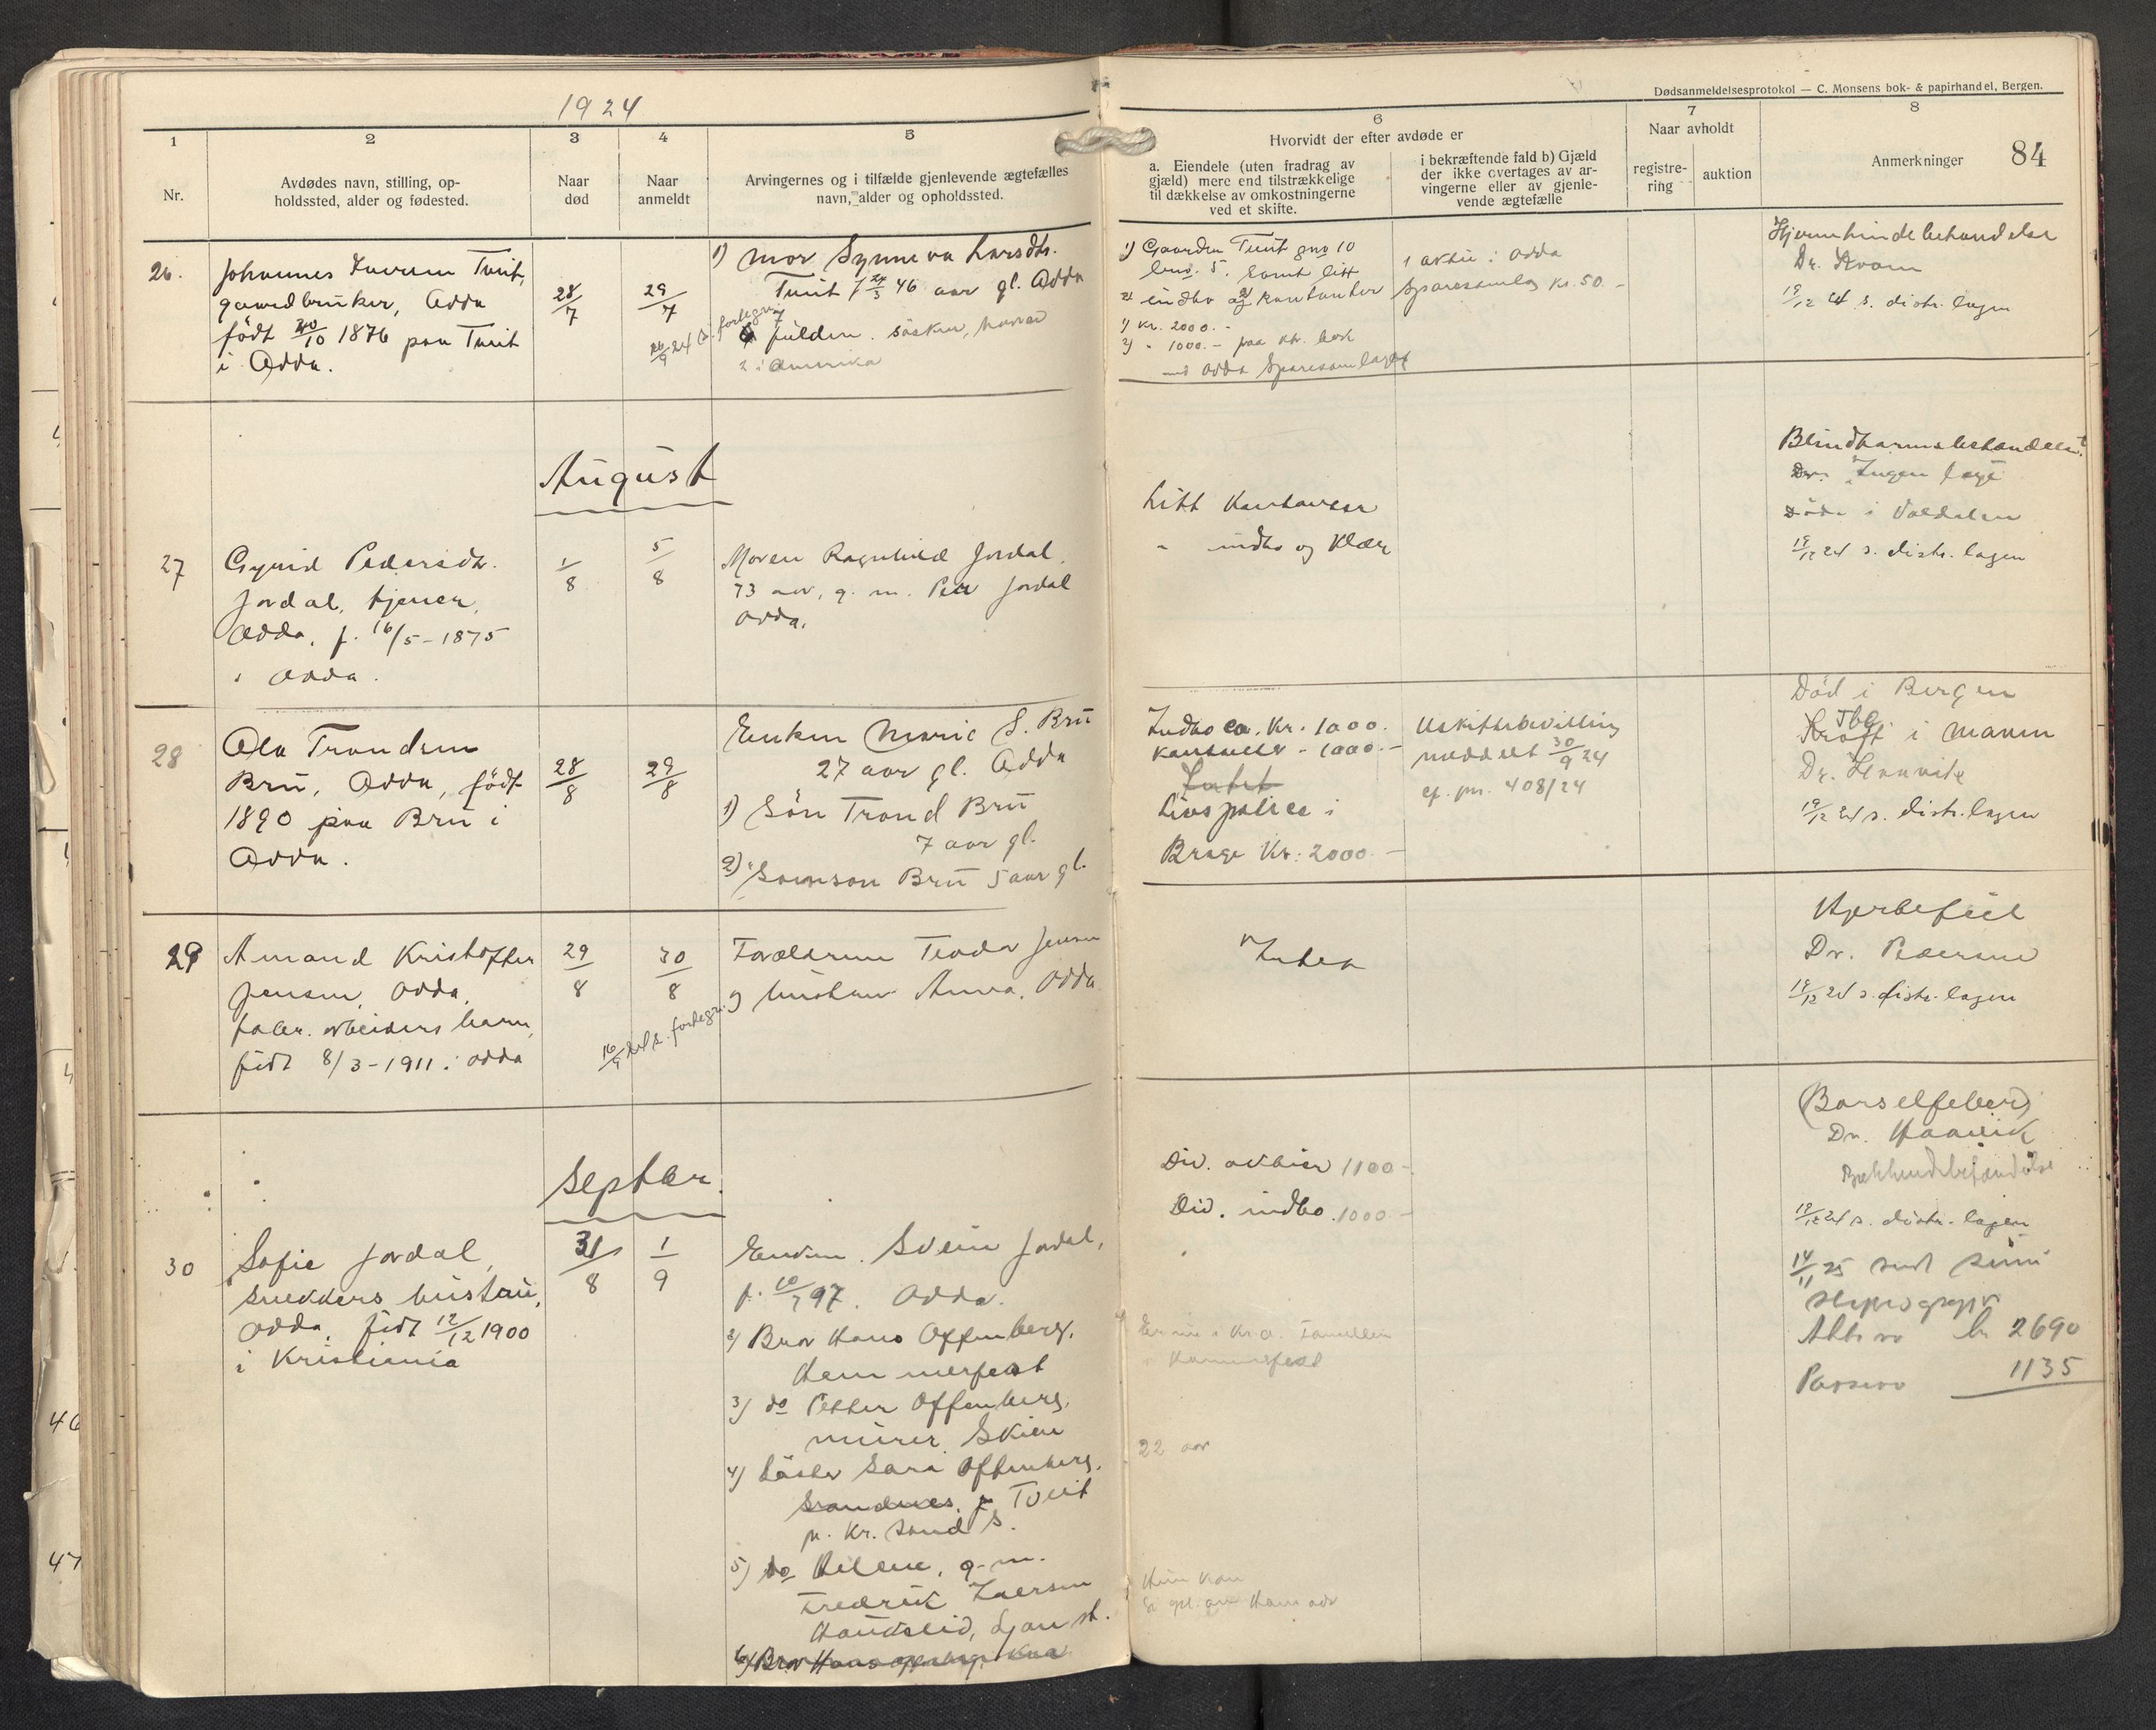 1924
Dødsanmeldelsesprotokol — C. Monsens bok- & papirhandel, Bergen.
84
1
Nr.
2
Avdødes navn, stilling, op-
holdssted, alder og fødested.
3
Naar
død
4
Naar
anmeldt
5
Arvingernes og i tilfælde gjenlevende ægtefælles
navn, alder og opholdssted.
6
Hvorvidt der efter avdøde er
a. Eiendele (uten fradrag av
gjæld) mere end tilstrækkelige
til dækkelse av omkostningerne
ved et skifte.
i bekræftende fald b) Gjæld
der ikke overtages av ar-
vingerne eller av gjenle-
vende ægtefælle
7
Naar avholdt
registre-
ring
auktion
8
Anmerkninger
26.
Johannes Iversen Tveit,
gaardbruker, Odda
født 30/10 1876 paa Tveit
i Odda.
28/7
29/7
1) Mor Synneva Larsdtr.
Tveit aar gl. Odda
7 søsken,
2 i Amerika
1) Gaarden Tveit gno 10
bno. 5. Samt litt
2) indbo og kontanter
1) kr. 2000.-
2) " 1000.- paa ktr. bok
med Odda Sparesamlag
1 aktie i Odda
Sparesamlag kr. 50.-
Hjernehindebetændelse
Dr. Kvam
19/12 24 s. distr. lægen
August
27
Gyrid Pedersdtr.
Jordal, tjener,
Odda, f. 16/5-1875
i Odda.
1/8
5/8
Moren Ragnhild Jordal,
73 aar, g. m. Per Jordal
Odda.
Litt Kontanter
" indbo og Klær
Blindtarmsbetændelse.
Dr. Ingen læge
Døde i Valdalen
19/12 24 s. distr. lægen
28
Ola Trondsen
Bru, Odda, født
1890 paa Bru i
Odda.
28/8
29/8
Enken Marie S. Bru
27 aar gl. Odda
1) Søn Trond Bru
7 aar gl.
2) Samson Bru 5 aar gl.
Indbo ca. Kr. 1000.
Kontanter - 1000.-
Intet
Livspolice i
Brage Kr. 2000.-
Uskiftebevilling
meddelt 30/9 24
cf. jnr. 408/24
Død i Bergen
Tbc
Kræft i Maven
Dr.
19/12 24 s. distr. lægen
29
Amand Kristoffer
Jensen, Odda,
fabr. arbeiders barn,
født 8/3-1911 i Odda
29/8
30/8
Forældrene Teodor Jensen
og hustru Anna, Odda
Intet
Hjertefeil
Dr. Pedersen
19/12 24 s. distr. lægen
Septbr.
30
Sofie Jordal,
snekkers hustru,
Odda, født 12/12 1900
i Kristiania
31/8
1/9
Enkem. Svein Jordal,
f. 10/7 97. Odda.
2) Bror Hans Offenberg,
Hammerfest
3) do Petter Offenberg,
murer, Skien
4) Søster Sara Offenberg,
Sandnes, Tveit
p. Kr. sand S.
5) do Helene, g. m.
Fredrik Iversen
Haukelid, Ljan st.
6) Bror Hans Offenberg,
Div. aktier 1100-
Div. indbo 1000-
i Hammerfest
22 aar
(Barselfeber)
Dr. Haavik
19/12 24 s. distr. lægen
14/11 25 sendt
Aktiva kr 2690
Passiva 1135